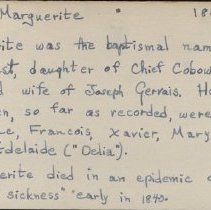 Marguerite " 18
ite was the baptismal nam
st, daughter of Chief Cobow
d wife of Joseph Gervais. He
en, so far as recorded, were
e, Francois, Xavier, Mary
Adelaide ("Delia").
erite died in an epidemic o
sickness" early in 1840.